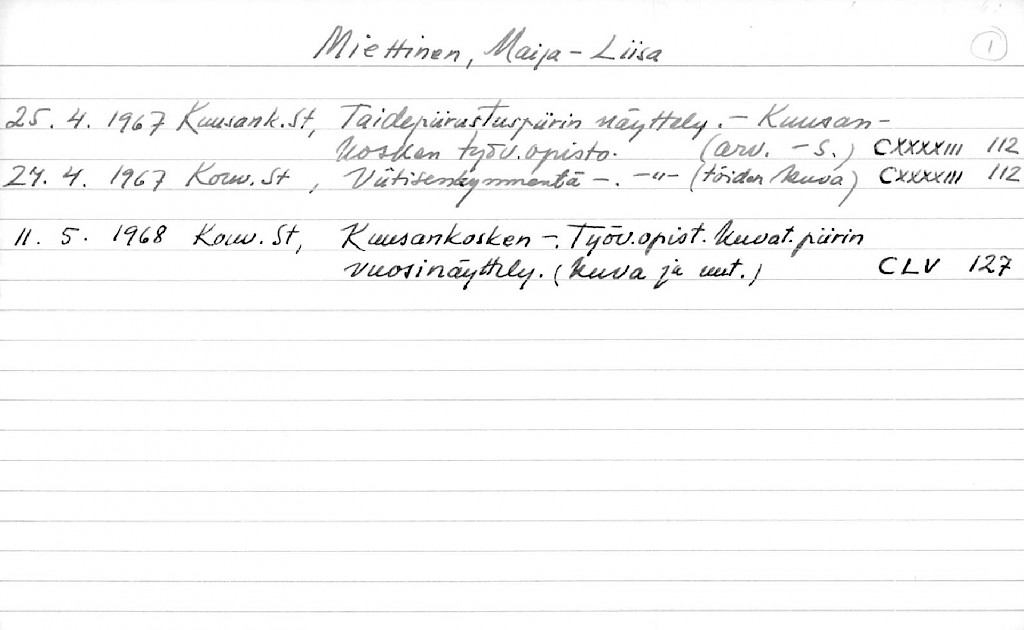 Miettinen, Maija-Liisa 1
25. 4. 1967 Kuusank.St, Taidepiirustuspiirin näyttely. - Kuusan-
kosken työv.opisto. (arv. - S.) CXXXXIII 112
24. 4. 1967 Kouv. St, Viitisenkymmentä -. -"- (töiden kuva) CXXXXIII 112
11. 5. 1968 Kouv. St, Kuusankosken -. Työv.opist. kuvat.piirin
vuosinäyttely. (kuva ja uut.) CLV 127